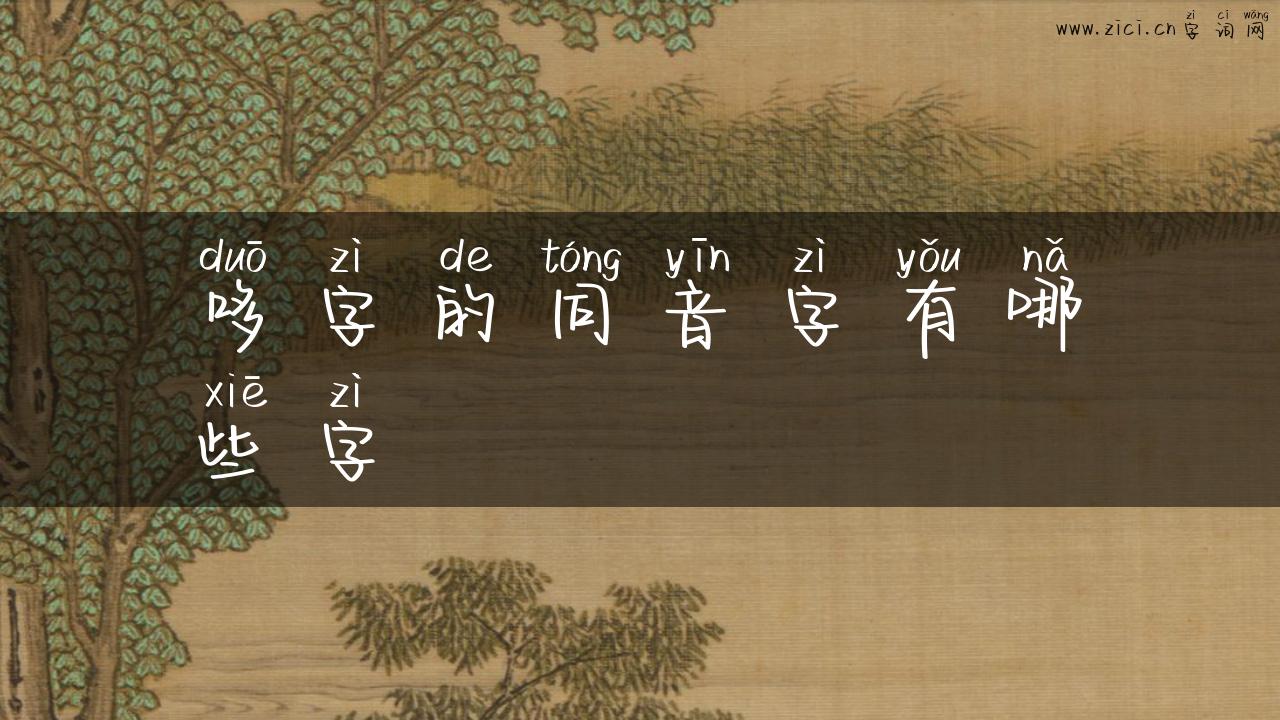 zì cí wǎng
www.zici.cn字词网
duō zì de tóng yīn zì yǒu nǎ
哆字的同音字有哪
xiē zì
些字